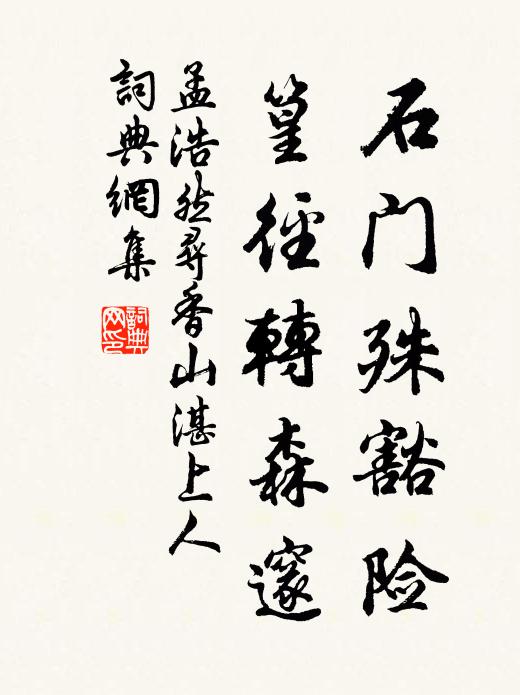 石门殊豁险
篁径轉森邃
孟浩然尋香山湛上人
詞典網集
詞典
网印